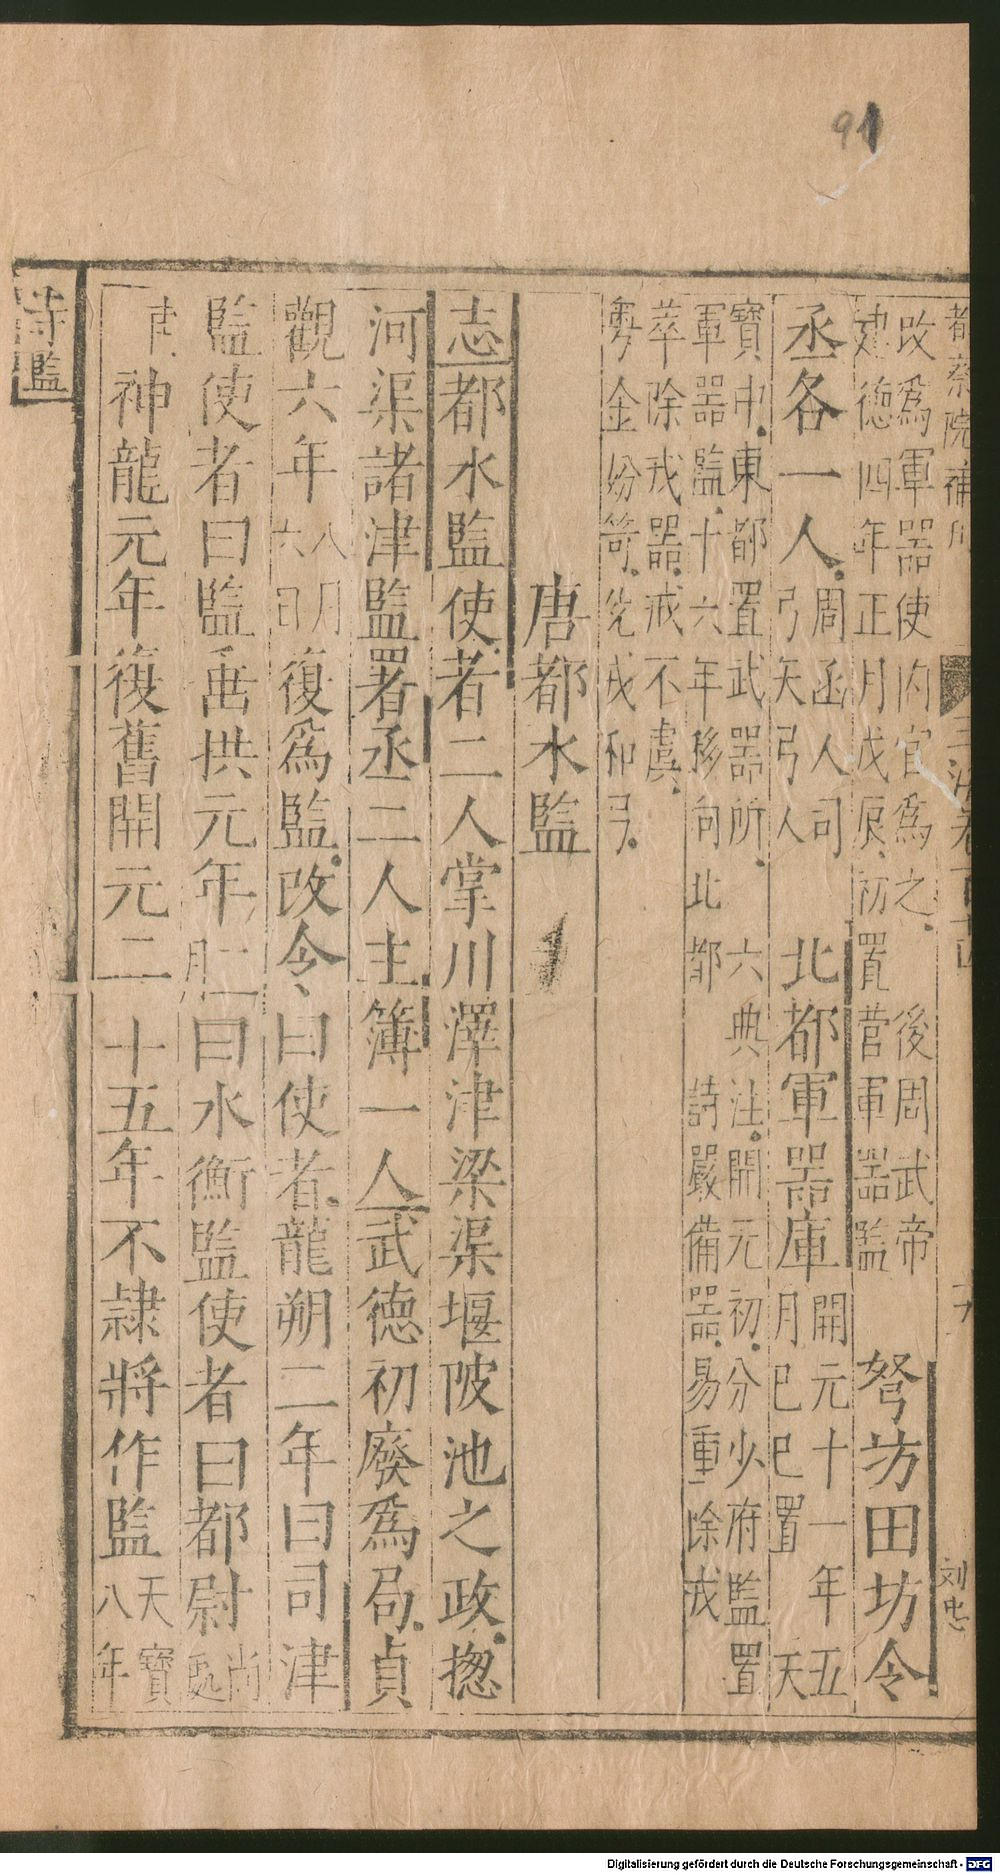 91
都察院補刊
十九
刘忠
改爲軍器使内官爲之
後周武帝
建德四年正月戊辰初置營軍器監
弩坊田坊令
丞各一人
周函人司
弓矢弓人
北都軍器庫
開元十一年五
月己巳置
天
寶中東都置武器所
六典注開元初分少府監置
軍器監十六年移向北都
詩嚴備器易重除戎
萃除戎器戒不虞
粤金妢笴
戎和弓
唐都水監
志都水監使者二人掌川澤津梁渠堰陂池之政揔
河渠諸津監署丞二人主簿一人武德初廢爲局貞
觀六年
八月
六日
復爲監改令曰使者龍朔二年曰司津
監使者曰監垂拱元年
二
月
曰水衡監使者曰都尉
尚
神龍元年復舊開元二十五年不隷將作監
天寶
八年
寺監
Digitalisierung gefördert durch die Deutsche Forschungsgemeinschaft - DFG